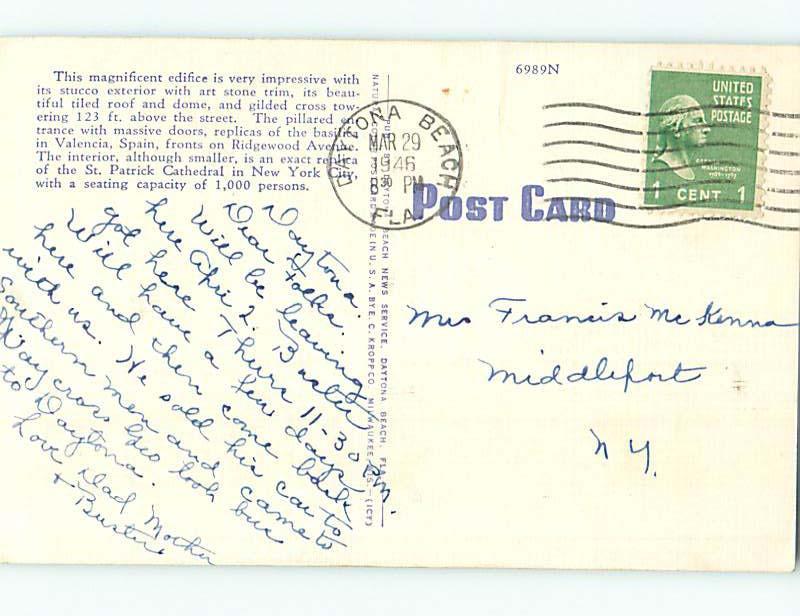 This magnificent edifice is very impressive with
its stucco exterior with art stone trim, its beau-
tiful tiled roof and dome, and gilded cross tow-
ering 123 ft. above the street. The pillared en-
trance with massive doors, replicas of the basilica
in Valencia, Spain, fronts on Ridgewood Avenue.
The interior, although smaller, is an exact replica
of the St. Patrick Cathedral in New York City,
with a seating capacity of 1,000 persons.
6989N
DAYTONA BEACH
MAR 29
1946
8 30 PM
FLA.
UNITED
STATES
POSTAGE
WASHINGTON
1 CENT 1
POST CARD
DAYTONA BEACH NEWS SERVICE, DAYTONA BEACH, FLA.
MADE IN U.S.A. BY E. C. KROPP CO., MILWAUKEE, WIS.—(ICY)
Daytona.
Dear Folks.
Will be leaving
here April 2. Buster
got here Thurs 11-30 P.M.
Will have a few days
here and then come back
with us. He sold his car to
Southern men and came to
Waycross Ga took bus
to Daytona.
Love Dad Mother
+ Buster
Mrs Francis McKenna
Middleport
N Y.